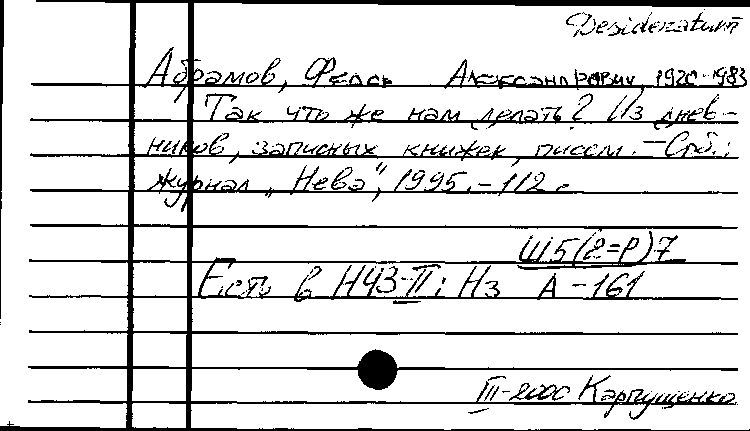 Desideratum
Абрамов, Федор Александрович, 1920-1983
Так что же нам делать? Из днев-
ников, записных книжек, писем. – Спб.:
журнал „Нева", 1995. – 112 с
Ш5(2=Р)7
Есть в НЧЗ-II: Нз А-161
III-2000 Карпущенко